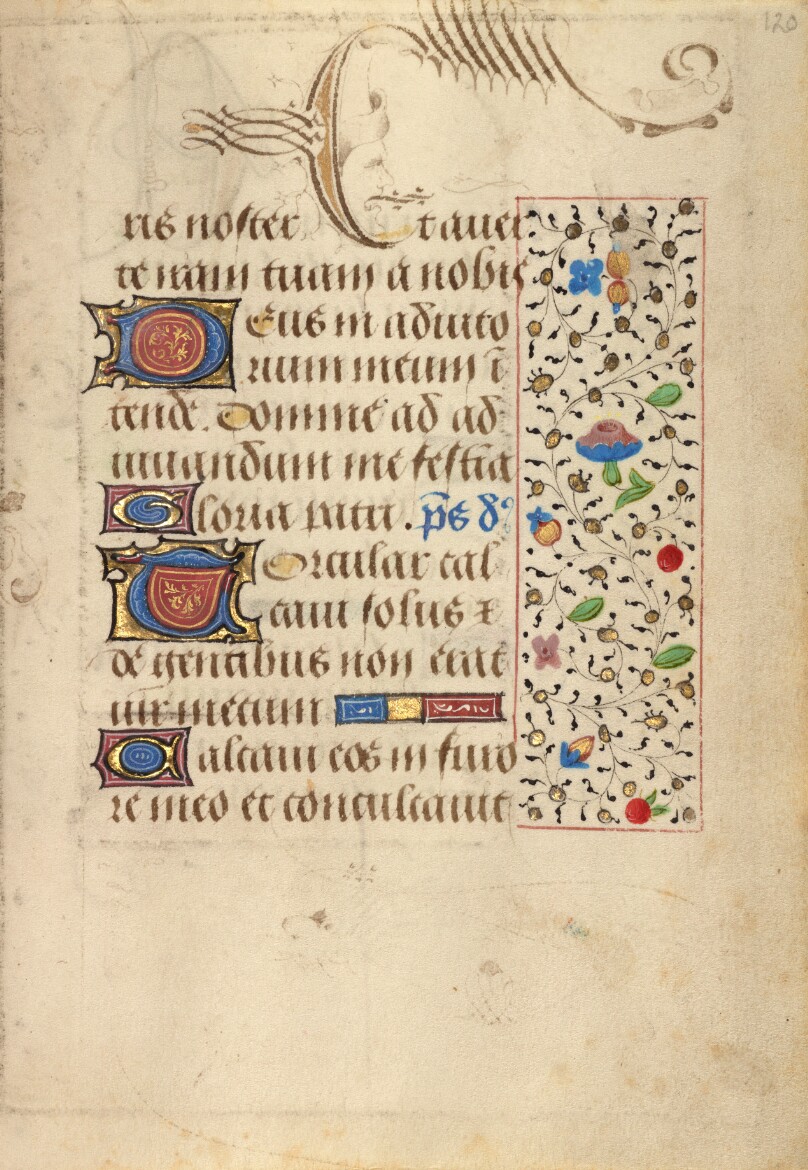 120
ris noster Et auer
te iram tuam a nobis
Deus in adiuto
rium meum ī
tende. Domine ad ad
iuuandum me festīa
Gloria patri. p̄s d̄
Torcular cal
caui solus ⁊
de gentibus non erat
uir mecum
Calcaui eos in furo
re meo et conculcauit